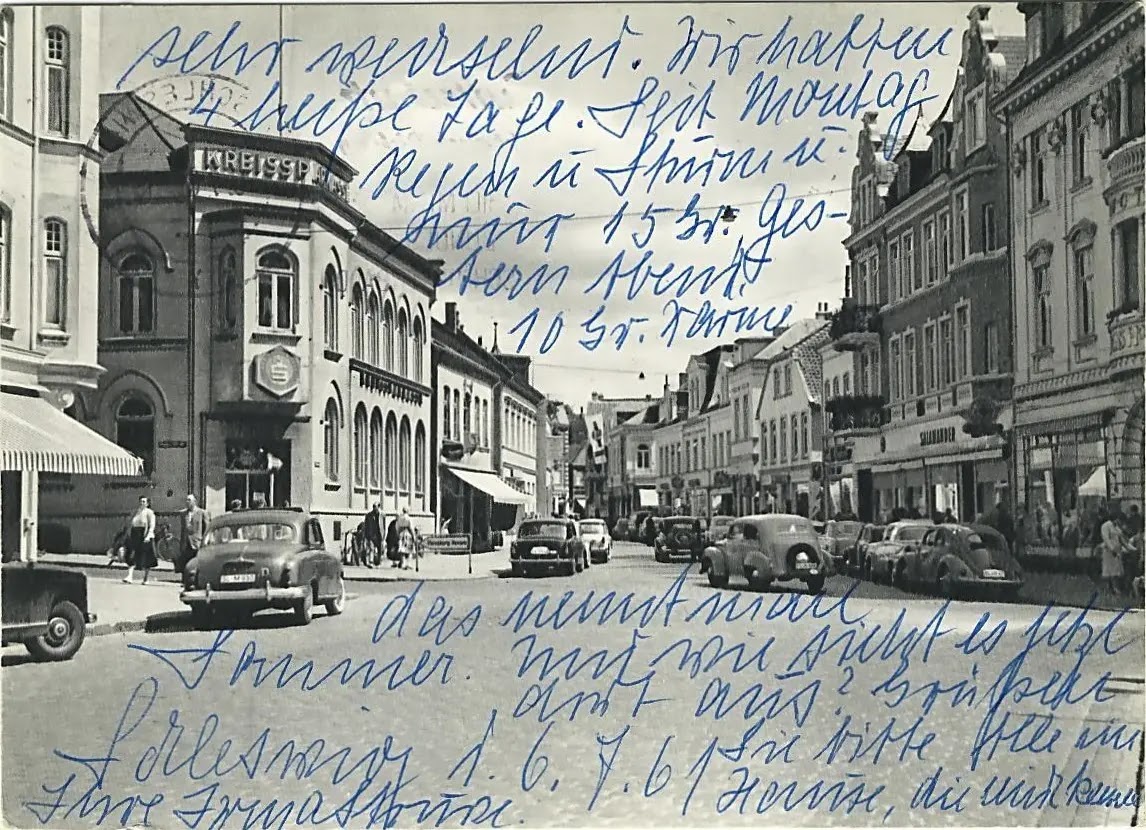 sehr wechselnd. Wir hatten
4 heiße Tage. Seit Montag
Regen u Sturm u.
nur 15 Gr. Ges-
tern Abend
10 Gr. Wärme
KREISSP
SALAMANDER
das nennt man
Sommer. Und wie sieht es jetzt
dort aus? Grüßen
Sie bitte Alle im
Hause, die mich kennen
Schleswig d. 6. 7. 61
Ihre Irma